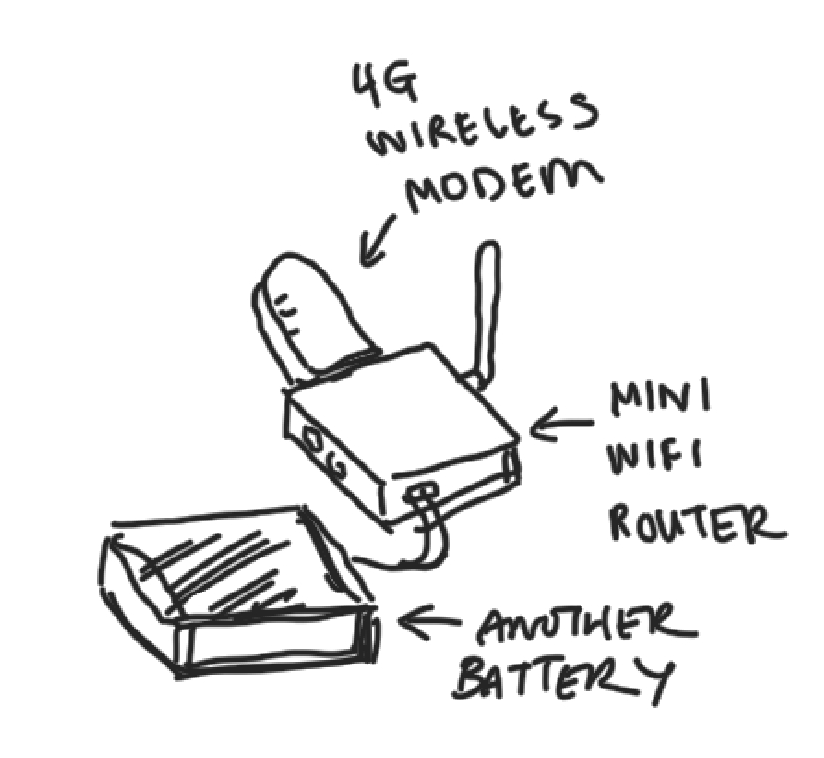 4G
WIRELESS
MODEM
MINI
WIFI
ROUTER
ANOTHER
BATTERY